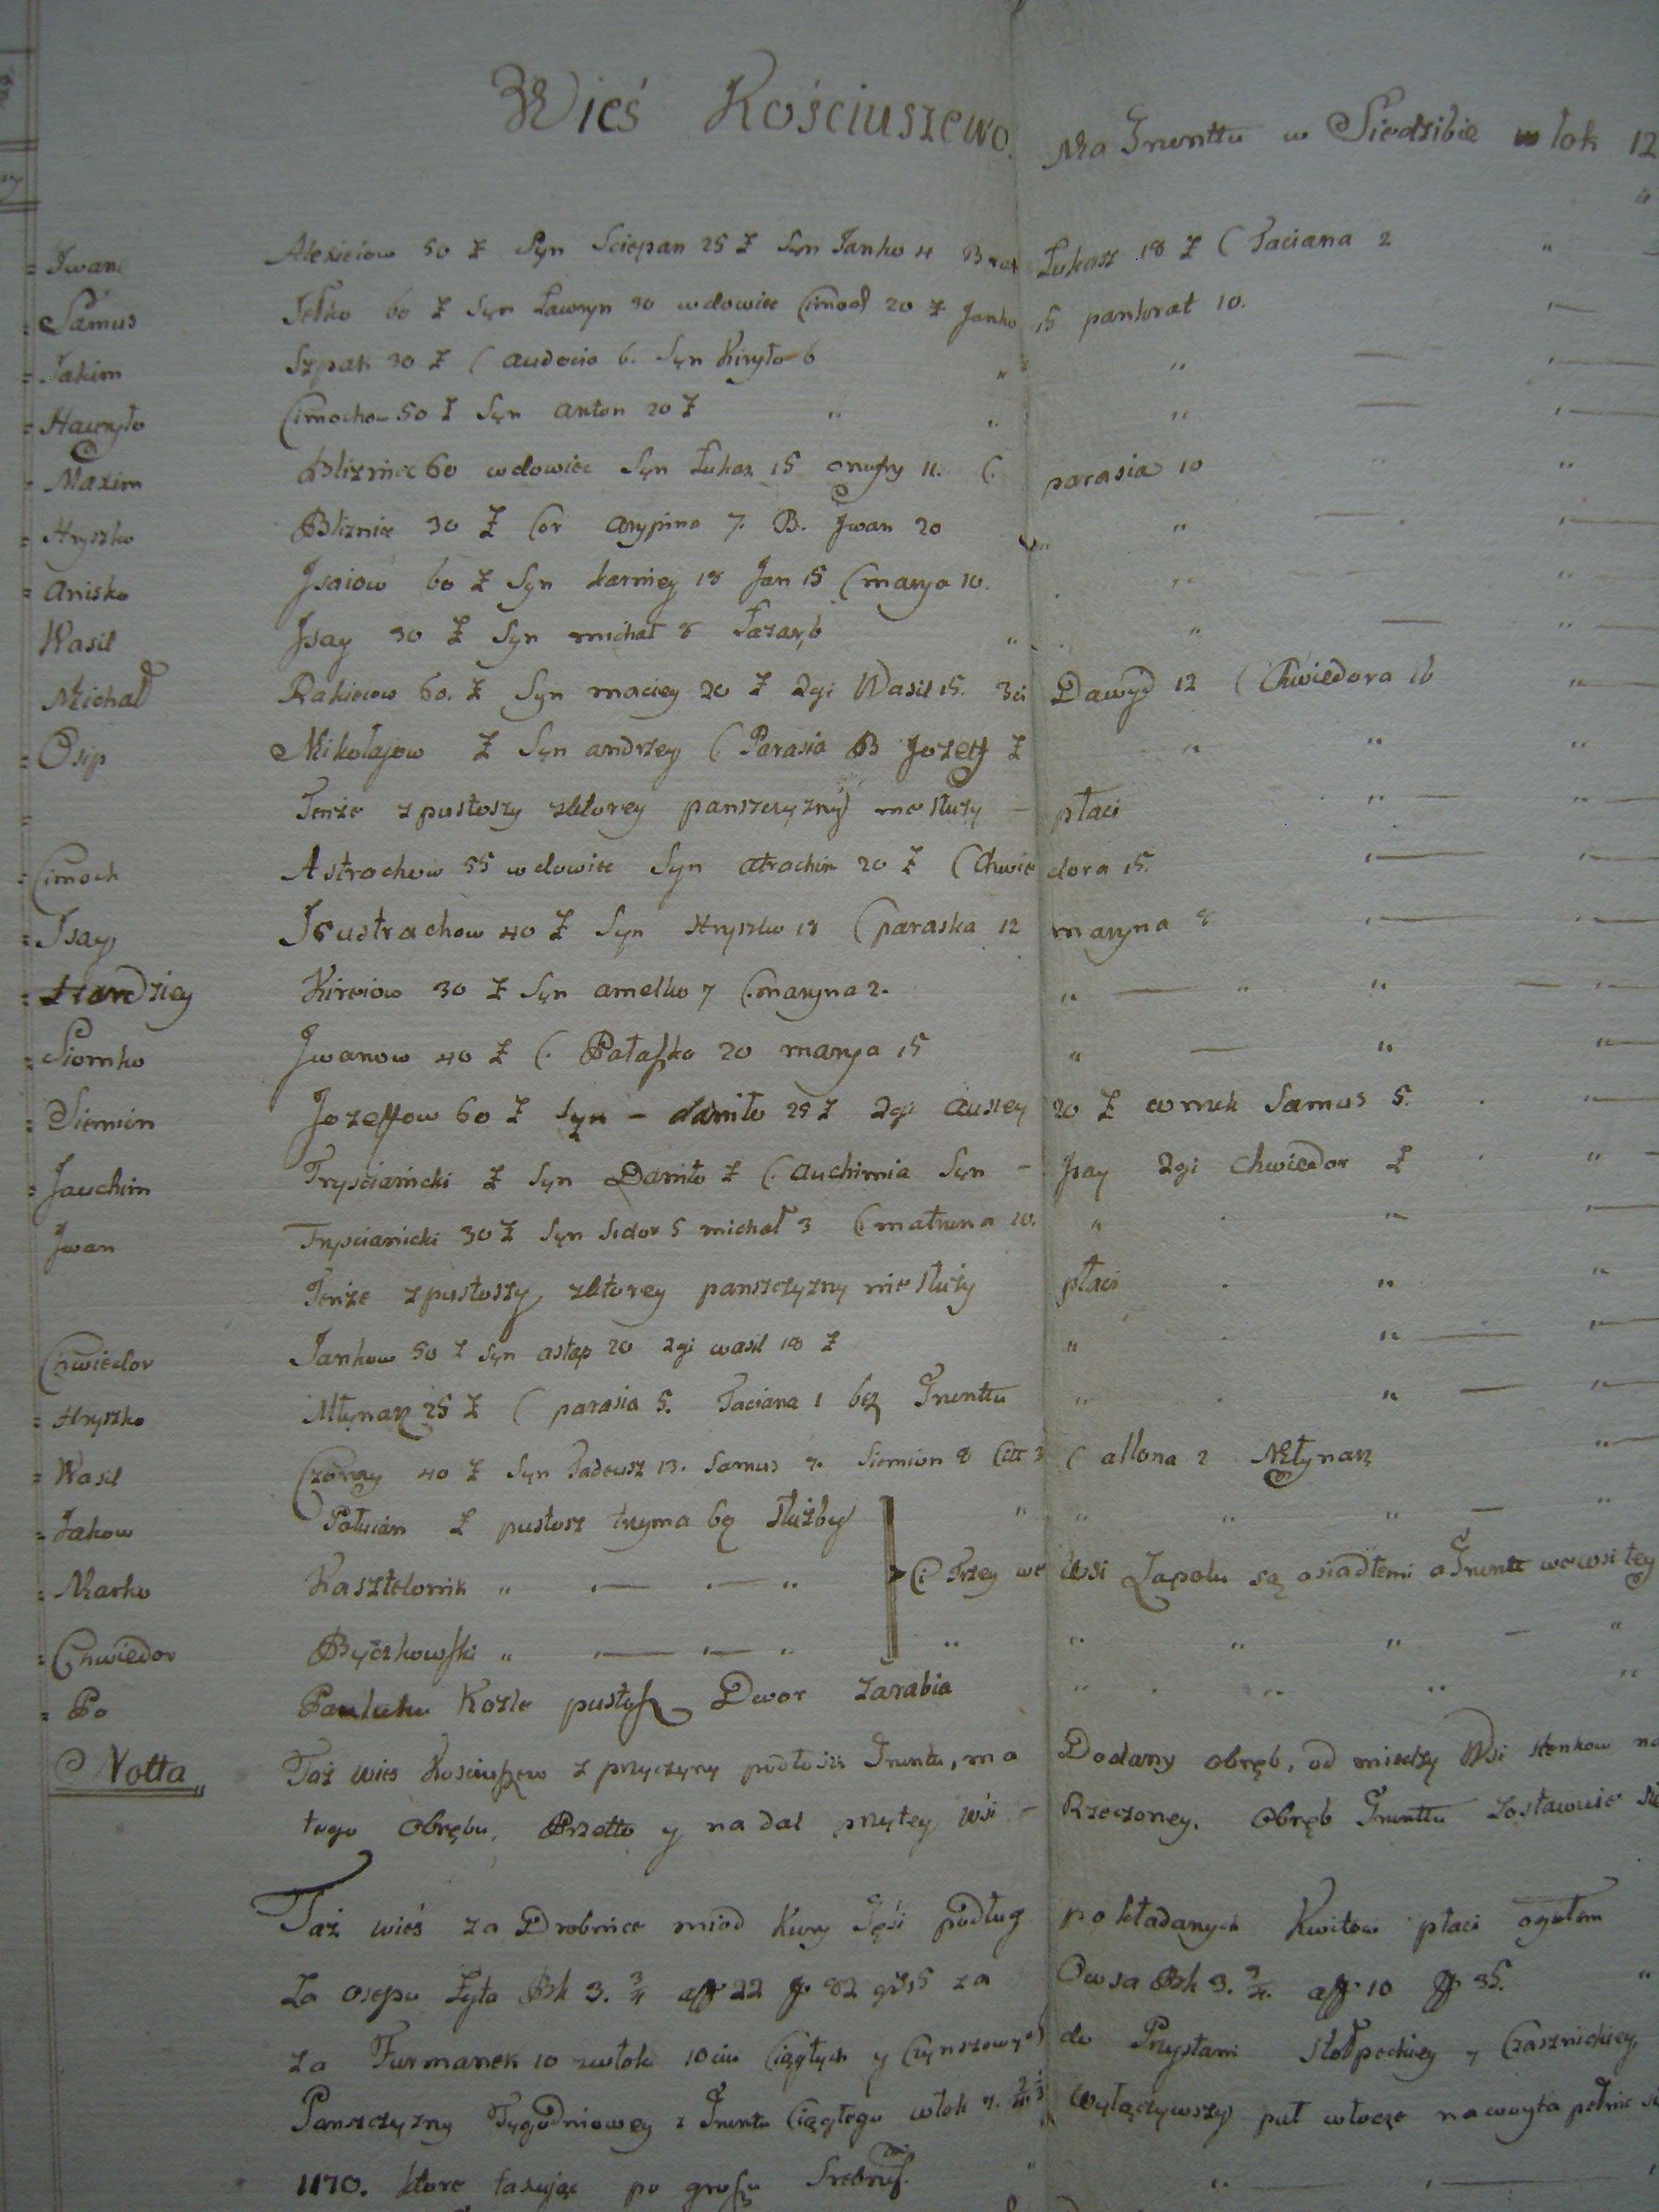 Wieś Kościuszewo. Ma Gruntu w Siedzibie włok 12
= Iwan Alexieiow 50 Ż Syn Sciepan 25 Ż Syn Janko 4 Brat Łukasz 18 Ż C Taciana 2
= Samus 60 Ż Syn Ławryn 30 wdowiec Cimoch 20 Ż Janko 15 pankrat 10.
= Jakim Szpak 30 Ż C audocia 6. Syn Kiryło 6
= Hawryło Cimochow 50 Ż Syn anton 20 Ż
Maxim Blizniec 60 wdowiec Syn Łukasz 15 onufry 11. C. parasia 10
= Hryszko Bliznic 30 Ż Cor arypina 7. B. Jwan 20
= Anisko Jsaiow 60 Ż Syn karniey 18 Jan 15 C marya 10.
Wasil Jsay 30 Ż Syn michał 8 Łazarz 6
Michał Rakieiow 60. Ż Syn maciey 20 Ż 2gi Wasil 15. 3ci Dawyd 12 C Chwiedora 16
= Osip Mikołajow Ż Syn andrzey C Parasia B Jozeff Ż
= Tenże z pustoszy zktorey panszczyzny nie służy – płaci
= Cimoch Astrachow 55 wdowiec Syn atrachim 20 Ż C Chwiedora 15.
= Jsay Jeustrachow 40 Ż Syn Hryszko 18 C paraska 12 maryna 8
= Handziey Kireiow 30 Ż Syn amelko 7 C. maryna 2.
= Siomko Jwanow 40 Ż C. Połaszka 20 marya 15
= Siemion Jozeffow 60 Ż Syn – daniło 25 Ż 2gi ausiey 20 Ż wnuk Samus 5.
= Jauchim Tryścianicki Ż Syn Daniło Ż C. auchimia Syn – Jsay 2gi Chwiedor Ż
Jwan Tryscianicki 30 Ż Syn Sidor 5 michał 3 C matruna 10.
Tenże z pustoszy zktorey panszczyzny nie służy płaci
Chwiedor Jankow 50 Ż Syn astap 20 2gi wasil 18 Ż
= Hryszko Młynarz 25 Ż C parasia 5. Taciana 1 bez Gruntu
= Wasil Czorny 40 Ż Syn Tadeusz 13. Samus 9. Siemion 8 C allona 2 Młynarz
= Jakow Połucian Ż pustosz trzyma bez służby
= Marko Kasztelonik Ci Trzey we Wsi Zapolu są osiadłemi a Grunt we wsi tey
= Chwiedor Byczkowski
= Po Pauluku Kozle pustosz Dwor zarabia
Notta Taż wies Kosciuszewo z przyczyny podłości Gruntu, ma Dodany obręb, od miedzy Wsi
tego obrębu, Przetto y nadal przytey wsi – Rzeczoney. Obręb Gruntu zostawuie się
Taż wieś za Drobnice miod Kury Gęsi podług pokładanych Kwitow płaci ogułem
Za osepu Żyta Bk 3. 3/4 22 82 gr 15 za Owsa Bk 3. 3/4. 10 35.
za Furmanek 10 zwłok 10ciu Ciągłych y Czynszowych do Przystani Stołpeckiey y Czasznickiey
Panszczyzny Tygodniowey z Gruntu Ciągłego włok 9. Wyłączywszy puł włoczę na woyta
1170. ktore taxując po groszu Srebrnym.